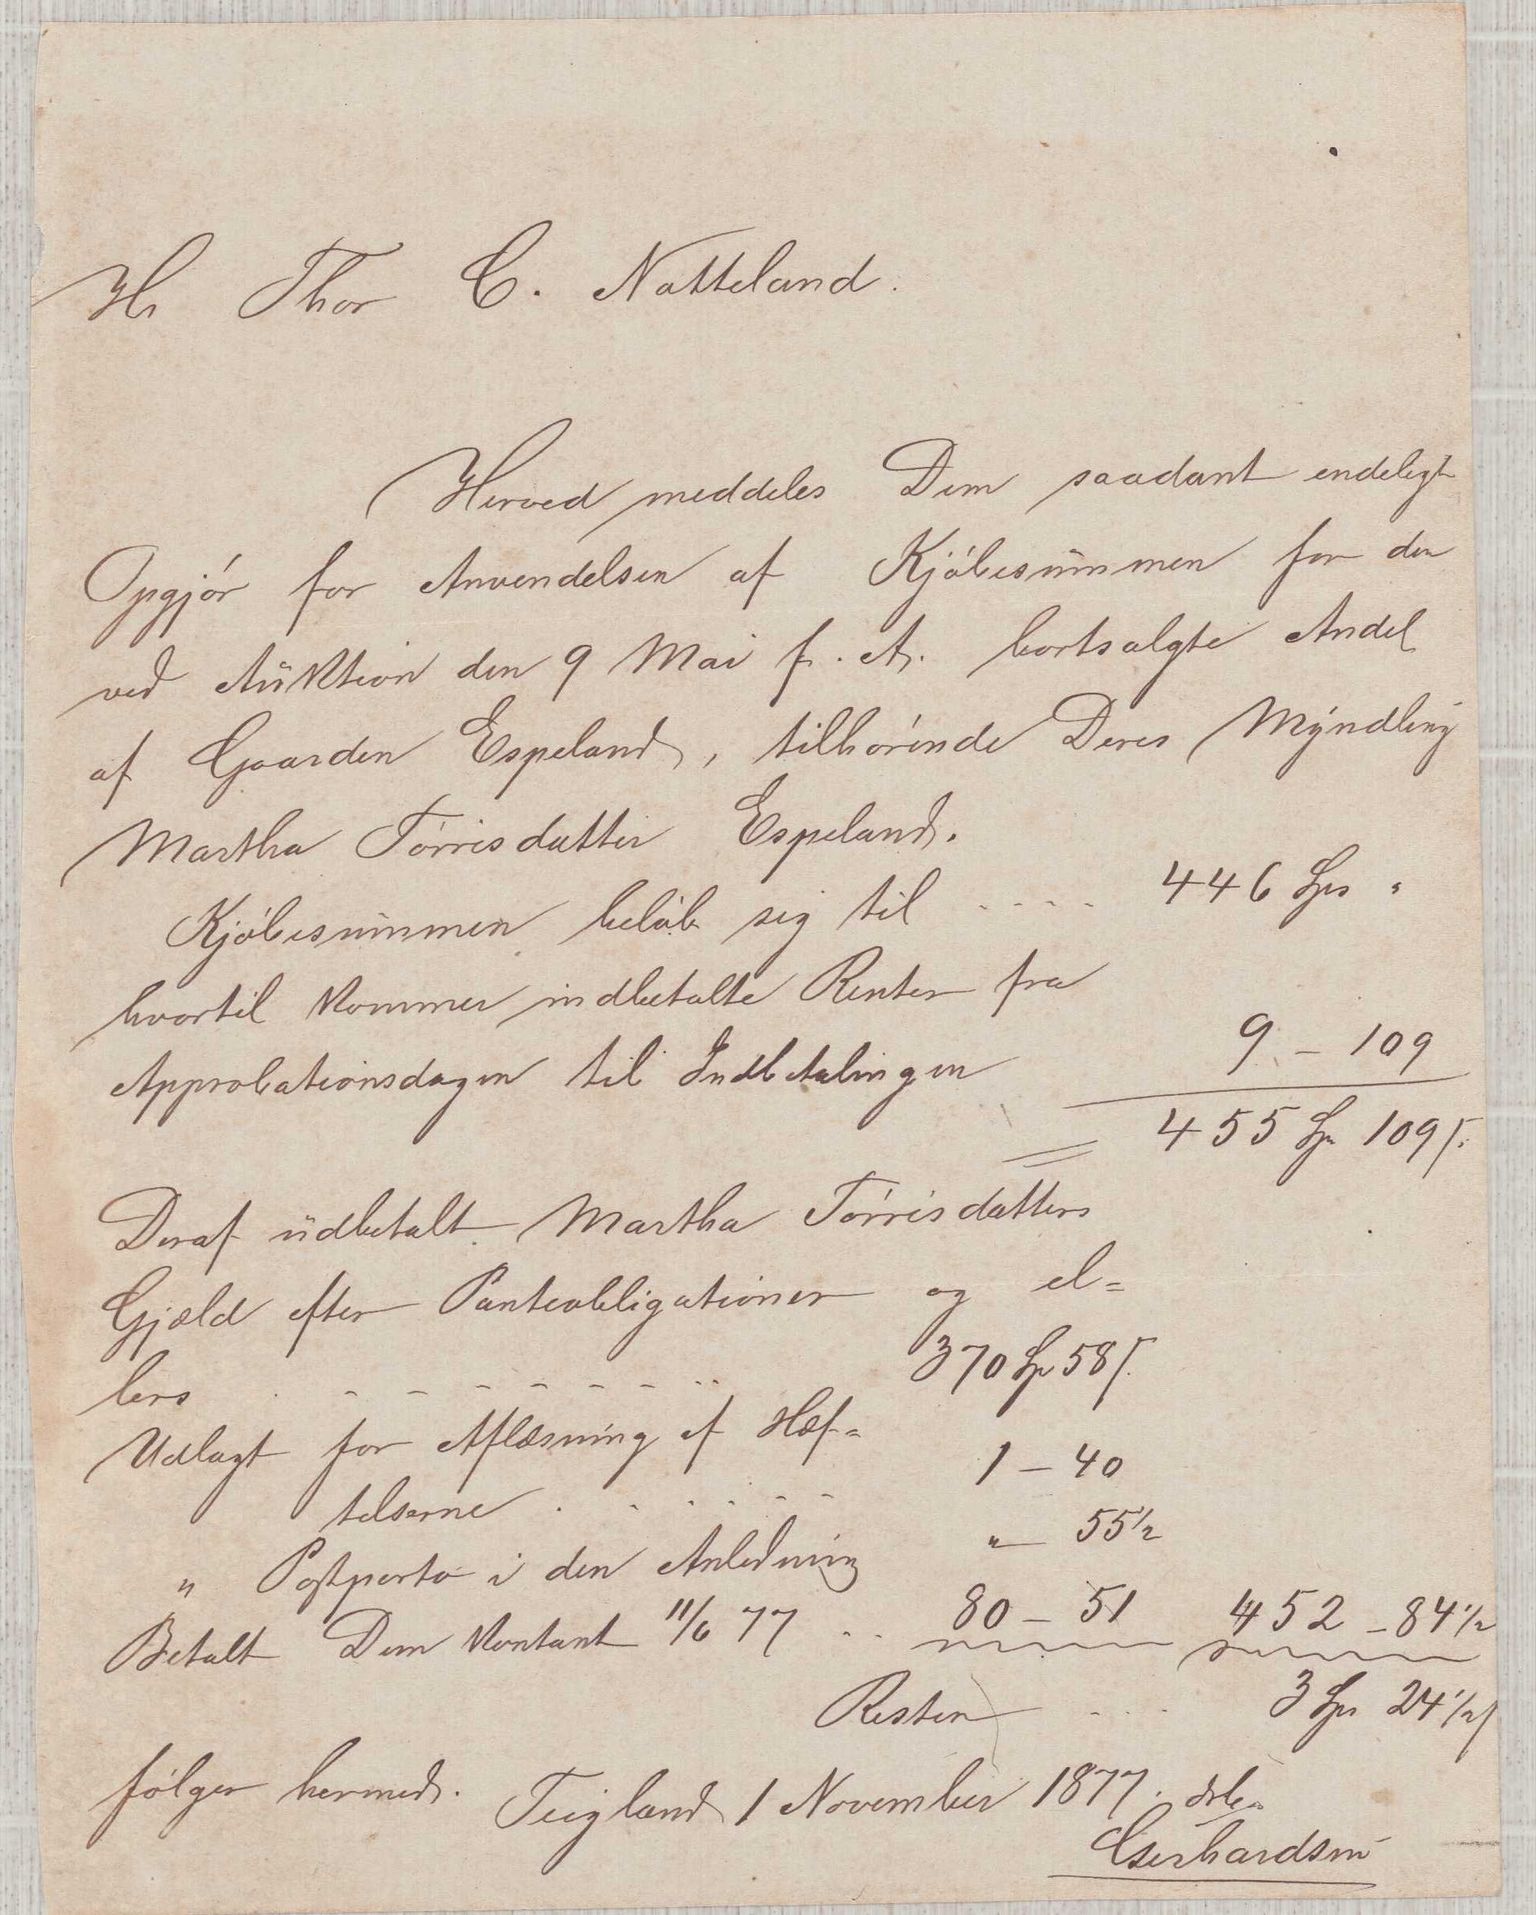 Hr Thor C. Natteland.
Herved meddeles Dem saadant endeligt
Opgjør for Anvendelsen af Kjøbesummen for den
ved Auktion den 9 Mai f. A. bortsolgte Andel
af Gaarden Espeland, tilhørende Deres Myndling
Martha Tørrisdatter Espeland.
Kjøbesummen beløb sig til .... 446 Sps "
hvortil kommer indbetalte Renter fra
Approbationsdagen til Indbetalingen 9 – 109
455 Sp 109 s.
Deraf udbetalt Martha Tørrisdatters
Gjæld efter Panteobligationer og el=
lers . - - - - - - - .. 370 Sp 58 s.
Udlagt for Aflæsning af Hæf=
telserne . . . . . . 1 – 40
" Postporto i den Anledning " – 55 1/2
Betalt Dem kontant 11/6 77 .. 80 – 51 452 – 84 1/2
Resten .... 3 Sps 24 1/2 s
følger hermed. Teigland 1 November 1877.
Gerhardsen